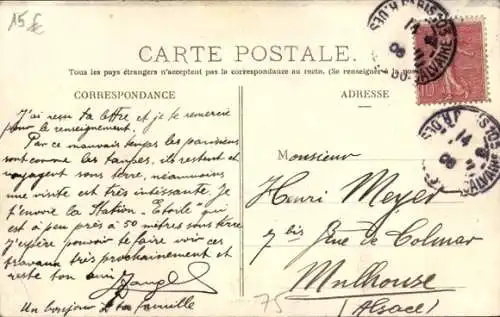 15 €
CARTE POSTALE.
Tous les pays étrangers n'acceptent pas la correspondance au recto. (Se renseigner à la poste)
CORRESPONDANCE
J'ai reçu ta lettre et je te remercie
pour le renseignement.
Par ce mauvais temps les parisiens
sont comme les taupes, ils restent et
voyagent sous terre, néanmoins
une visite est très intéssante. Je
t'envoie la Station "Etoile" qui
est à peu près à 50 mètres sous terre
J'espère pouvoir te faire voir ces
travaux très prochainement et
reste ton ami
Un bonjour à ta famille
ADRESSE
Monsieur
Henri Meyer
7 bis Rue de Colmar
Mulhouse
(Alsace)
75
10
PARIS
14
08
CALVAIRE
PARIS
14
08
CALVAIRE